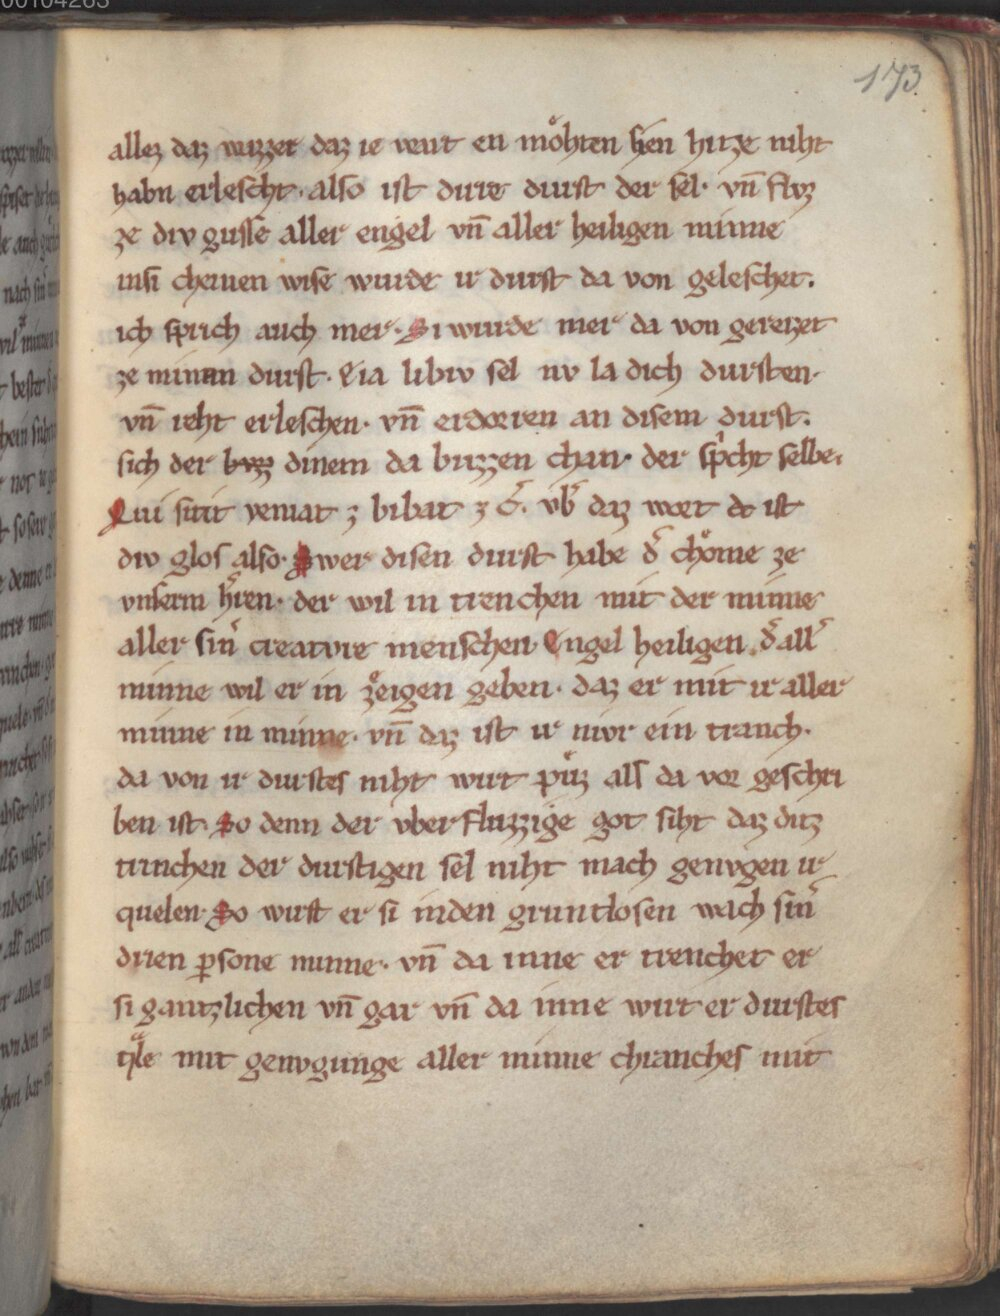 173
allez daz wazzer daz ie wart en möhten sien hitze niht
habn erlescht · also ist dirre durst der sel · vn̄ fluz
ze div gusse aller engel vn̄ aller heiligen minne
in si cheinen wise wurde ir durst da von geleschet.
ich sprich auch mer · Si wurde mer da von gereizet
ze minnen durst · Eia libiv sel nv la dich dursten ·
vn̄ reht erleschen · vn̄ erdorren an disem durst.
sich der dinem da buzzen chan · der sp̄cht selbe ·
Qui sitit veniat ⁊ bibat ⁊ c̄. vb̄ daz wort dc ist
div glos also · Swer disen durst habe d̄ chöme ze
vnserm h̄ren · der wil in trenchen mit der minne
aller sin̄ creatvre menschen Engel heiligen d̄ all̄
minne wil er in zeigen geben · daz er mit ir aller
minne in minne · vn̄ daz ist ir nivr ein tranch ·
da von ir durstes niht wirt pu̇z als da vor geschri
ben ist · So denn der vberfluzzige got siht daz ditz
trinchen der durstigen sel niht mach genvgen ir
quelen · So wirft er si in den gruntlosen wach sin̄
drien p̱sone minne · vn̄ da inne er trenchet er
si gantzlichen vn̄ gar vn̄ da inne wirt er durstes
mit genvgunge aller minne chranches mit